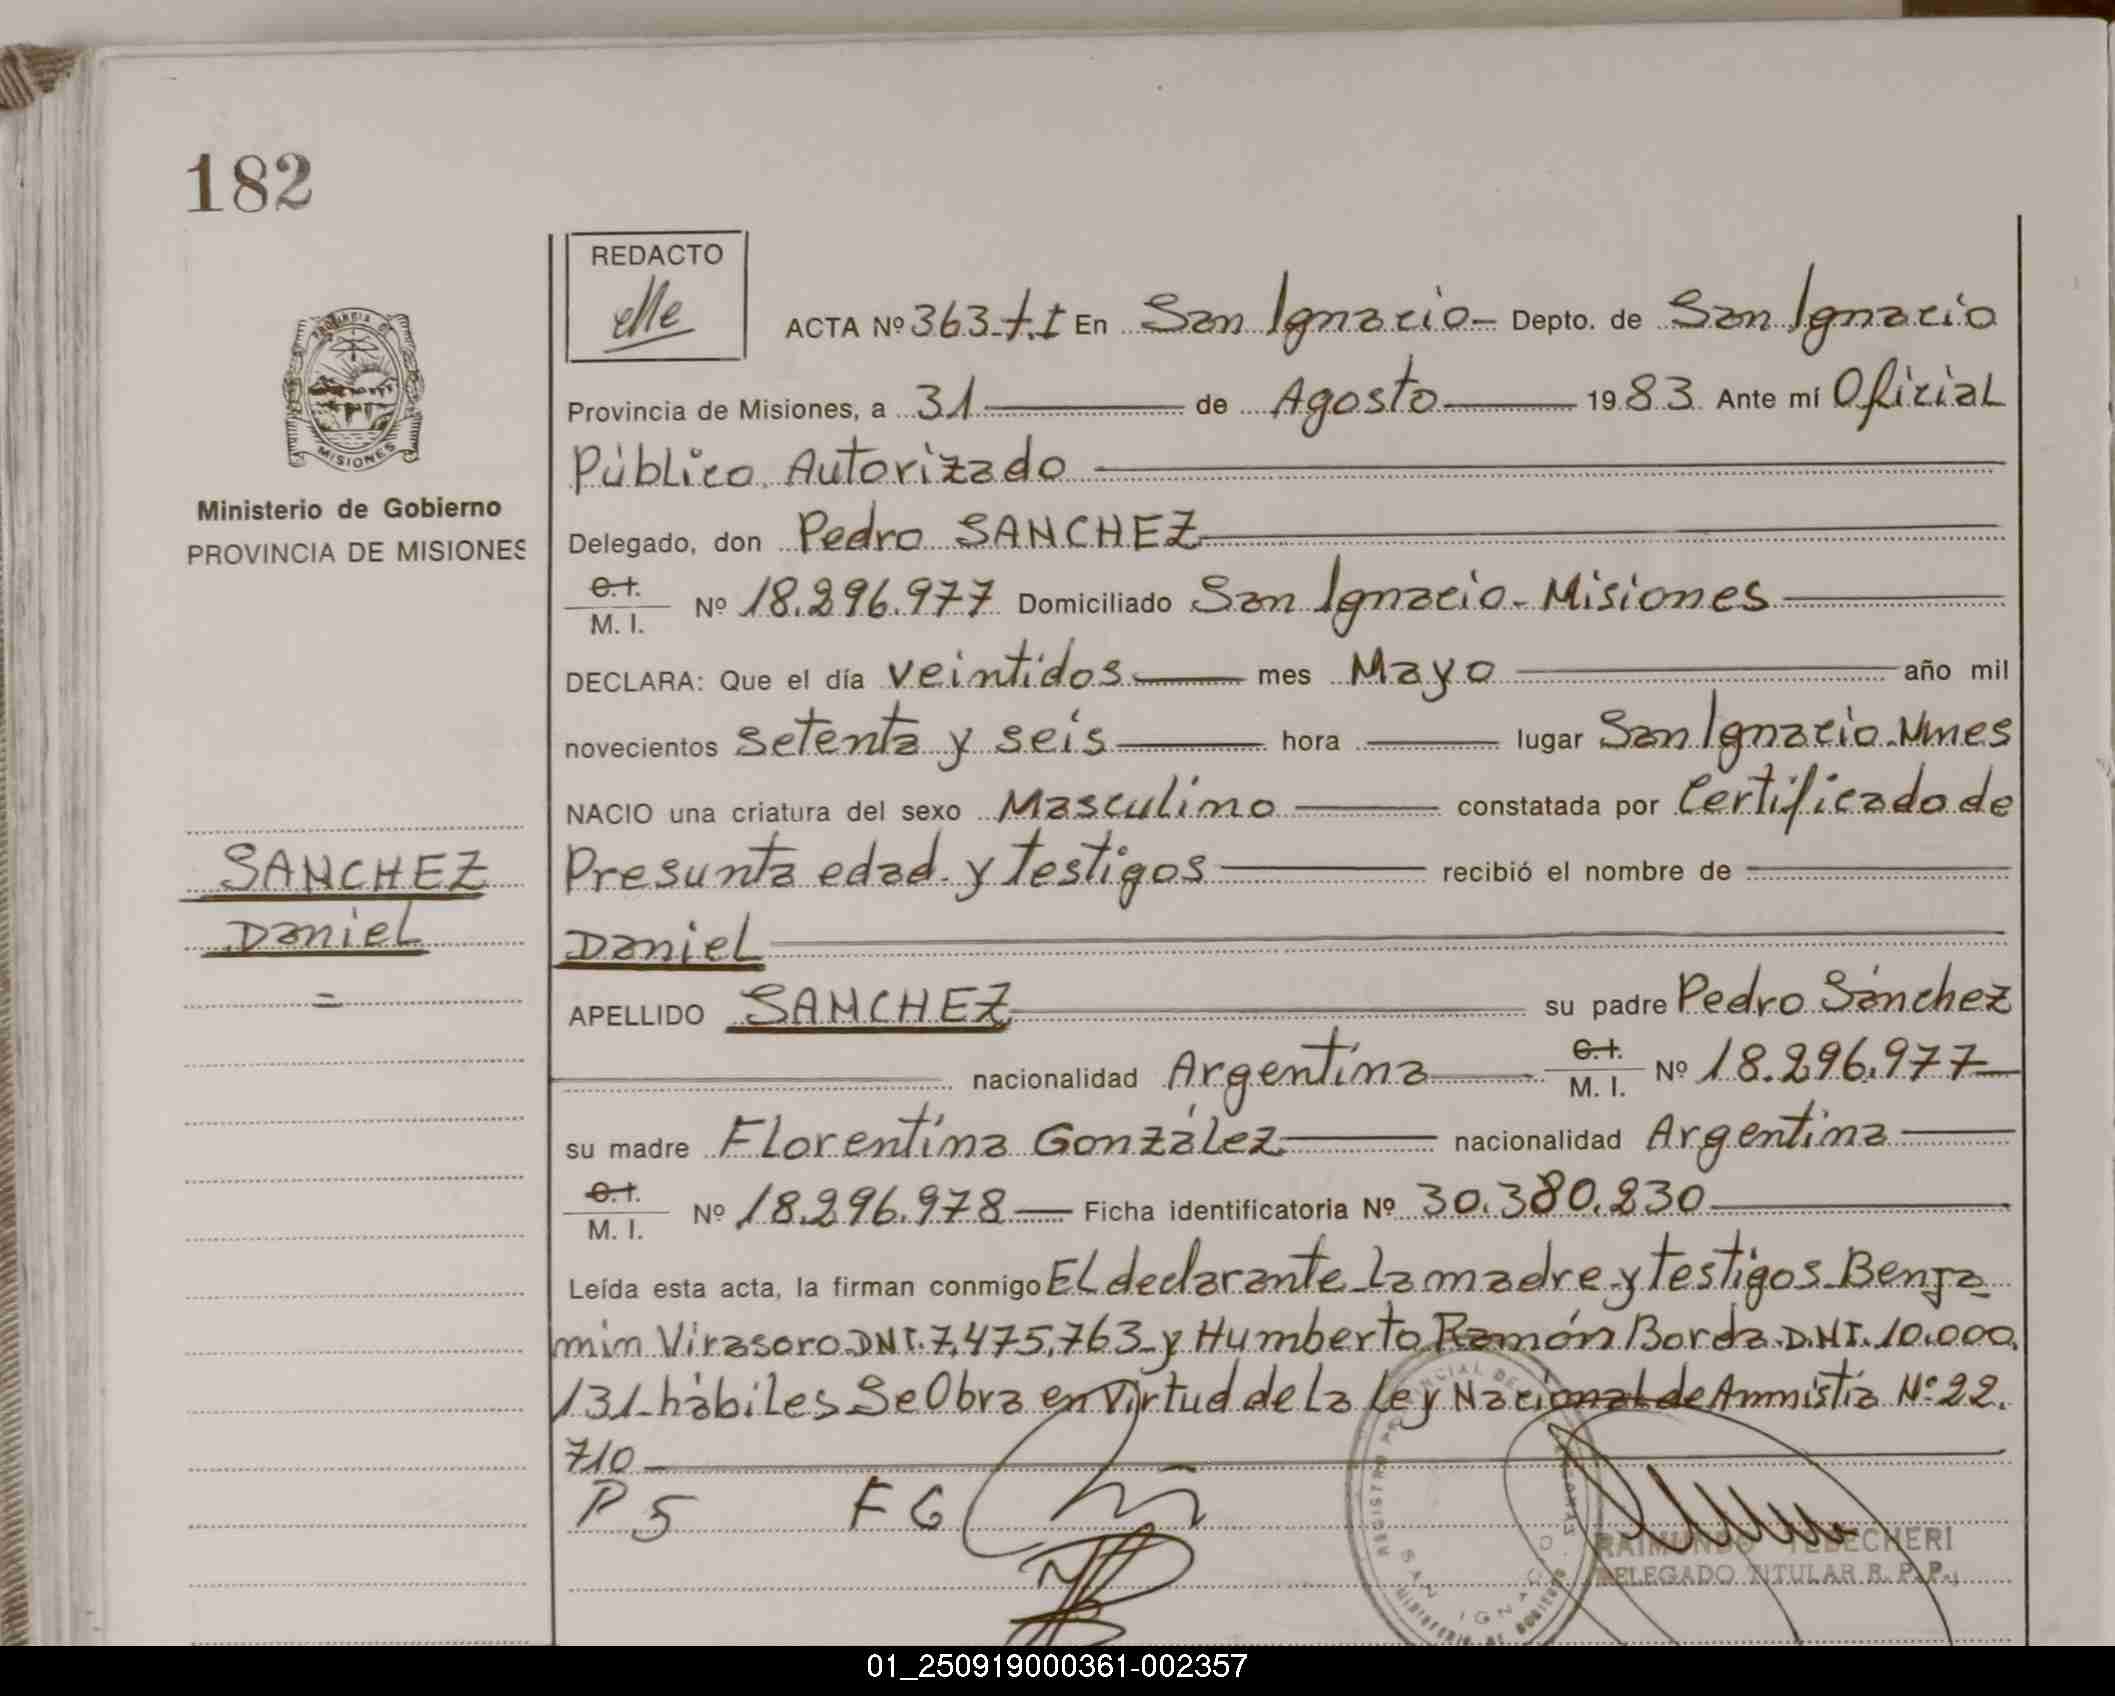 182
REDACTO
ACTA Nº 363 t. I En San Ignacio Depto. de San Ignacio
Provincia de Misiones, a 31 de Agosto 1983 Ante mí Oficial
Público Autorizado
PROVINCIA DE
MISIONES
Ministerio de Gobierno
PROVINCIA DE MISIONES
Delegado, don Pedro SANCHEZ
C.I.
M. I. Nº 18.296.977 Domiciliado San Ignacio - Misiones
DECLARA: Que el día veintidos mes Mayo año mil
novecientos setenta y seis hora lugar San Ignacio Mnes
NACIO una criatura del sexo Masculino constatada por Certificado de
SANCHEZ
Daniel
Presunta edad y testigos recibió el nombre de
Daniel
APELLIDO SANCHEZ su padre Pedro Sánchez
nacionalidad Argentina C.I. M. I. Nº 18.296.977
su madre Florentina González nacionalidad Argentina
C.I.
M. I. Nº 18.296.978 Ficha identificatoria Nº 30.380.230
Leída esta acta, la firman conmigo El declarante la madre y testigos Benja
min Virasoro DNI. 7.475.763 y Humberto Ramón Borda D.N.I. 10.000.
131 hábiles Se Obra en Virtud de La Ley Nacional de Amnistía Nº 22.
710
P S F G
RAIMUNDO
DELEGADO TITULAR R. P. P.
SAN IGNACIO
MINISTERIO DE GOBIERNO
01_250919000361-002357